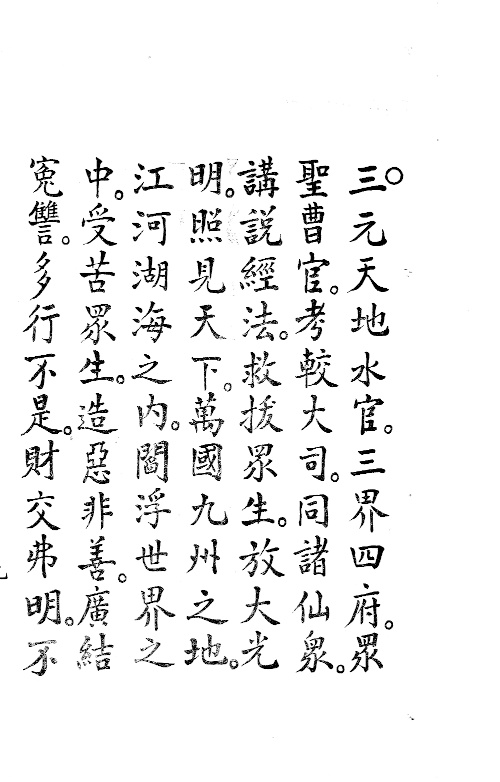 ○三元天地水官。三界四府。眾
聖曹官。考較大司。同諸仙眾。
講說經法。救拔眾生。放大光
明。照見天下。萬國九州之地。
江河湖海之內。閻浮世界之
中。受苦眾生。造惡非善。廣結
寃讐。多行不是。財交弗明。不